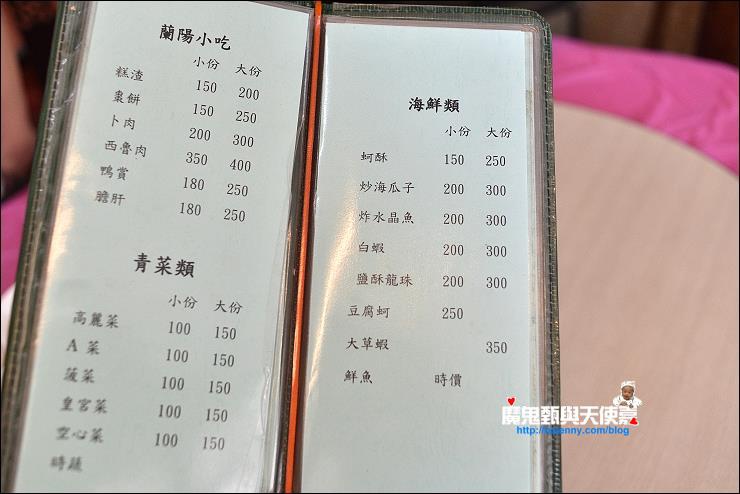 蘭陽小吃
小份 大份
糕渣 150 200
棗餅 150 250
卜肉 200 300
西魯肉 350 400
鴨賞 180 250
膽肝 180 250
青菜類
小份 大份
高麗菜 100 150
A 菜 100 150
菠菜 100 150
皇宮菜 100 150
空心菜 100 150
時蔬
海鮮類
小份 大份
蚵酥 150 250
炒海瓜子 200 300
炸水晶魚 200 300
白蝦 200 300
鹽酥龍珠 200 300
豆腐蚵 250
大草蝦 350
鮮魚 時價
魔鬼甄與天使嘉